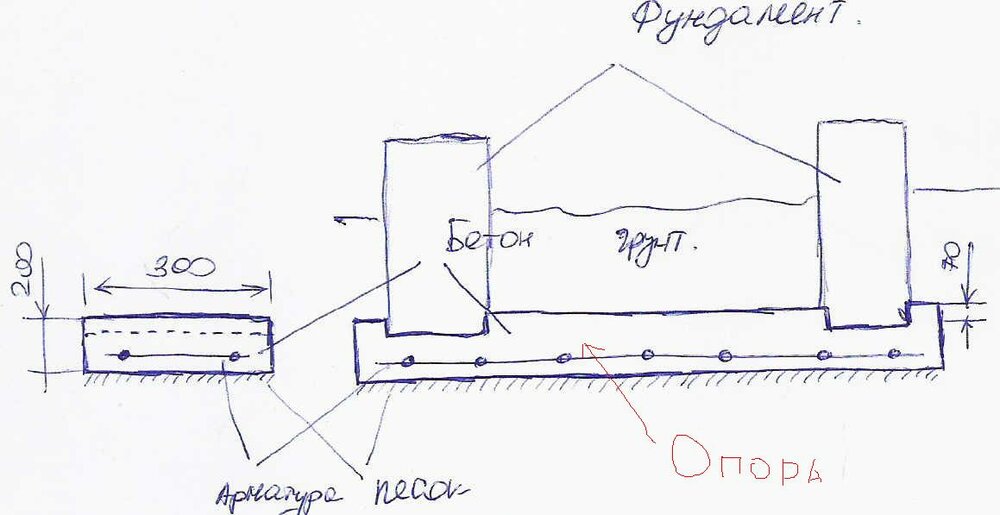 Фундамент.
Бетон
грунт.
200
300
70
Опора
Арматура песок